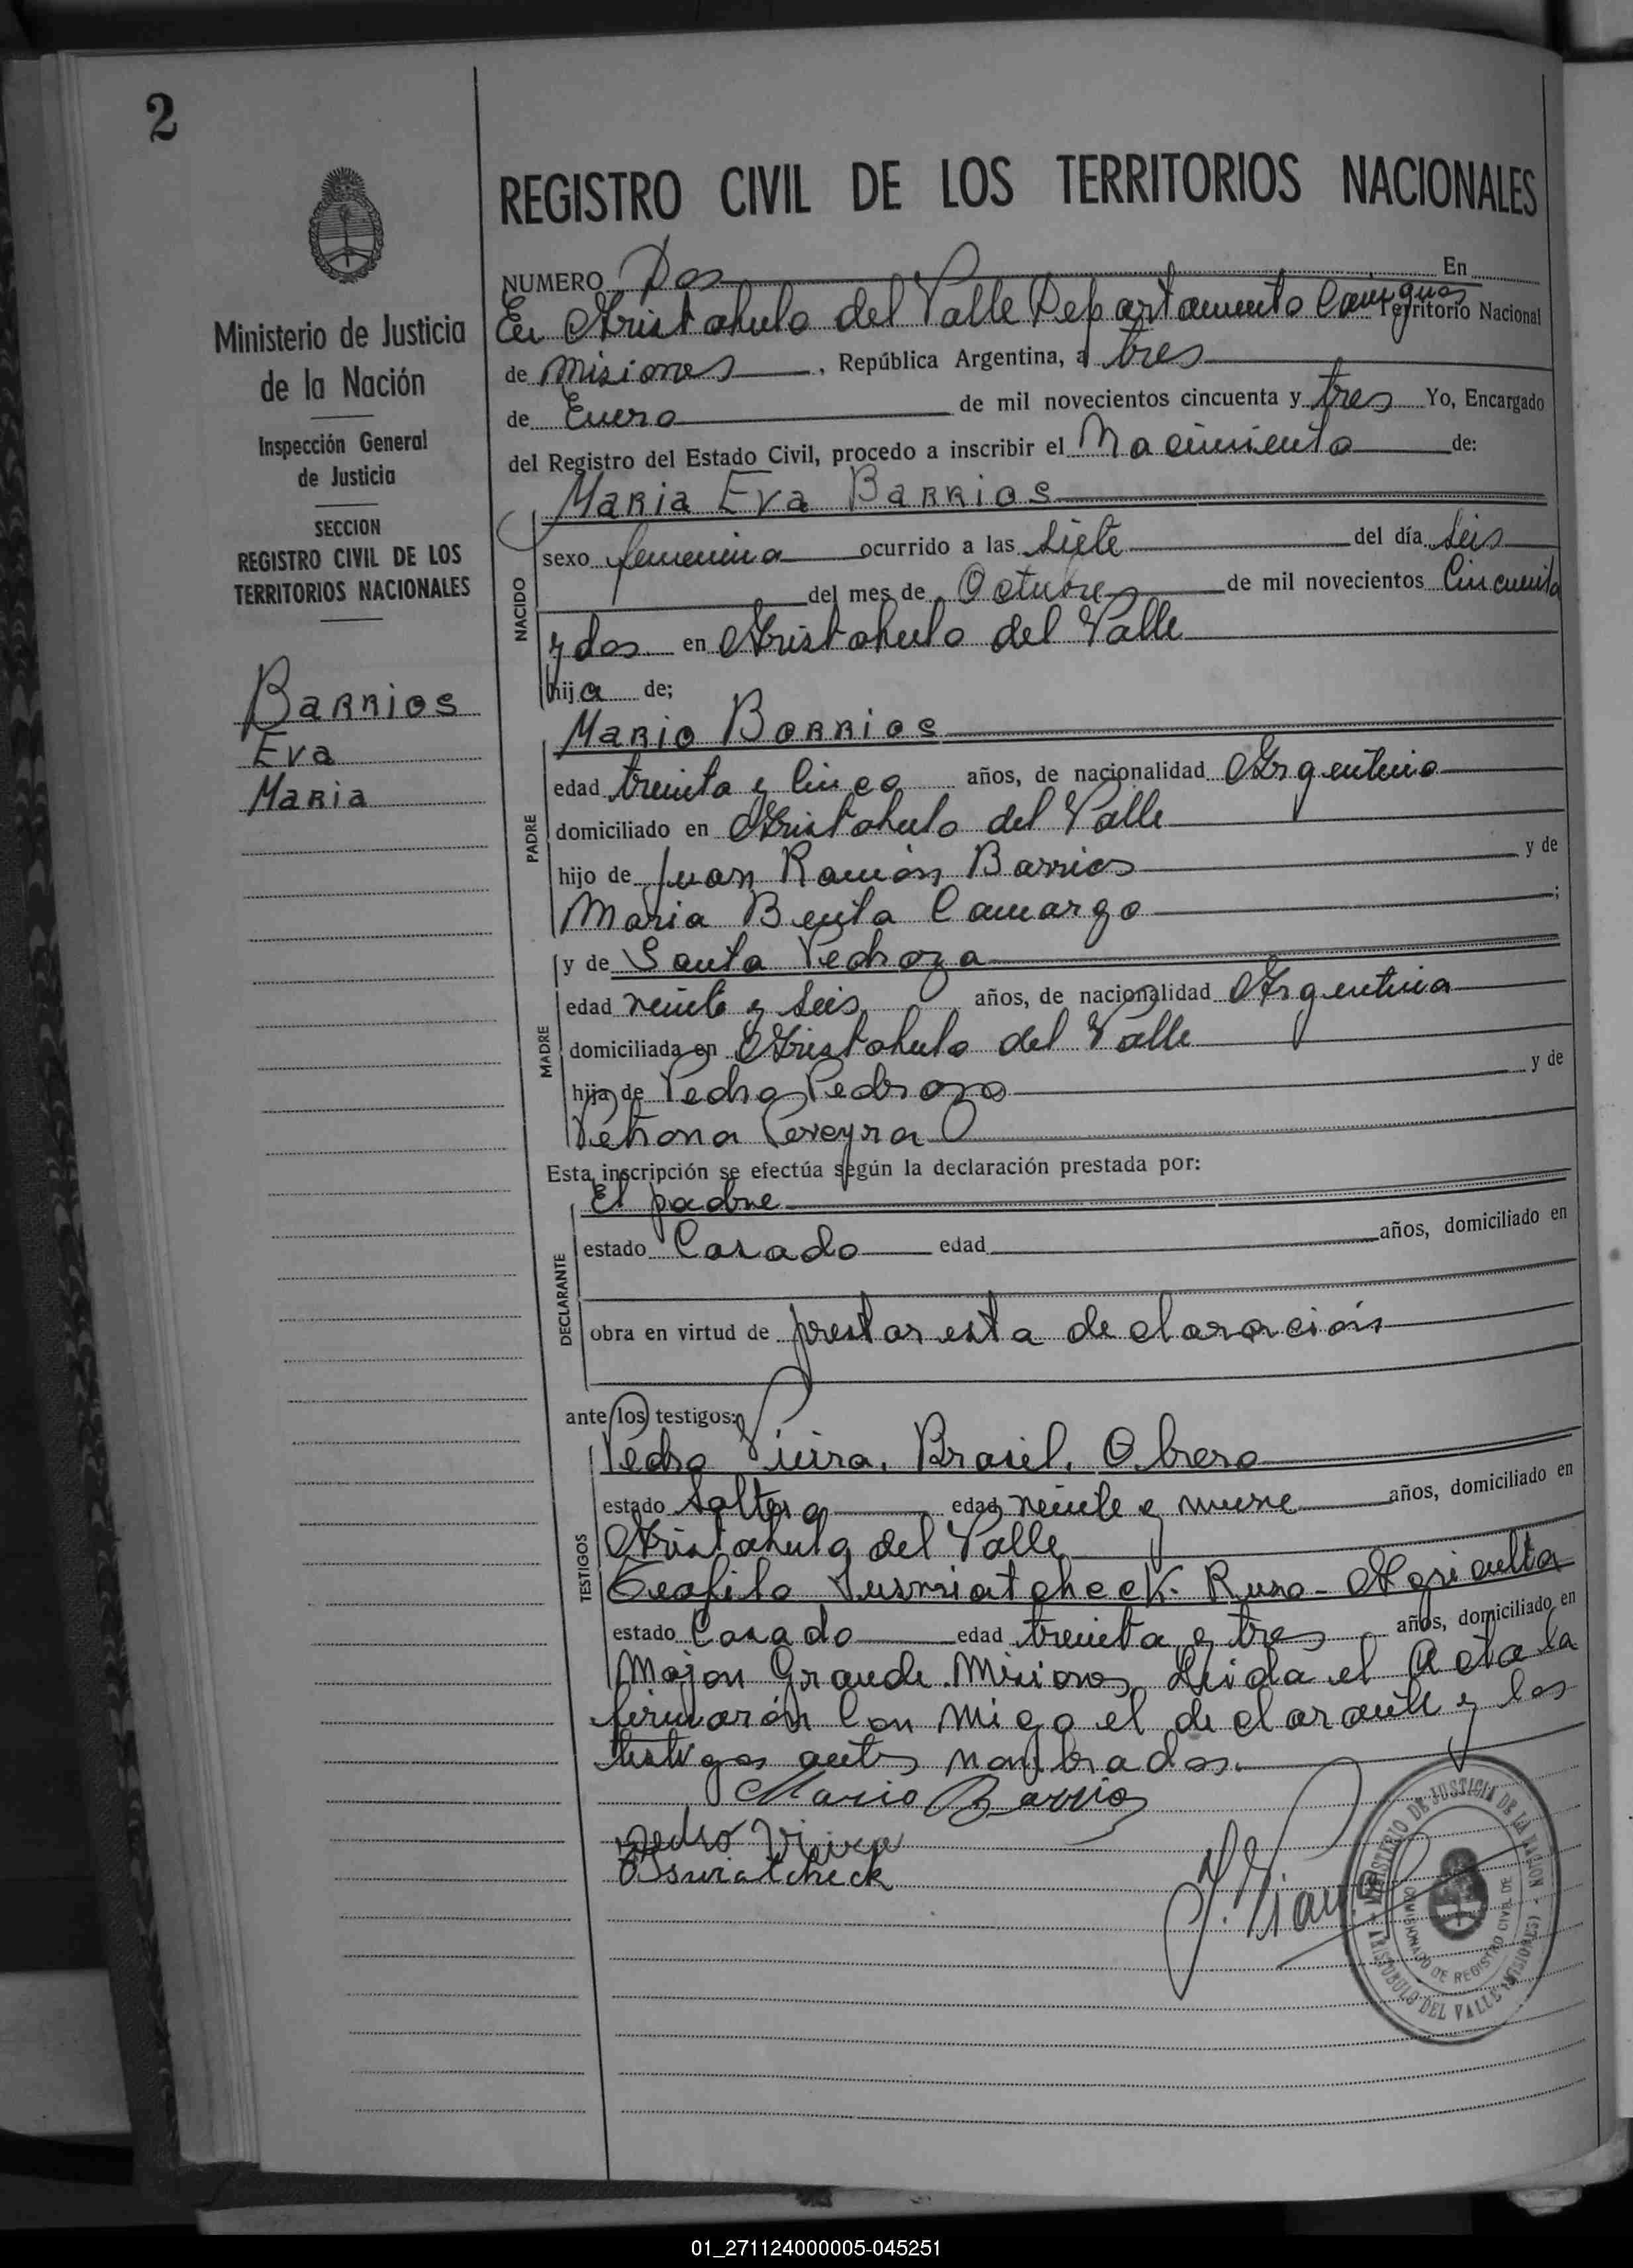 2
Ministerio de Justicia
de la Nación
Inspección General
de Justicia
SECCION
REGISTRO CIVIL DE LOS
TERRITORIOS NACIONALES
Barrios
Eva
Maria
REGISTRO CIVIL DE LOS TERRITORIOS NACIONALES
NUMERO Dos En
En Aristobulo del Valle Departamento Cainguas Territorio Nacional
de Misiones, República Argentina, a tres
de Enero de mil novecientos cincuenta y tres Yo, Encargado
del Registro del Estado Civil, procedo a inscribir el Nacimiento de:
Maria Eva Barrios
NACIDO
sexo femenina ocurrido a las siete del día seis
del mes de Octubre de mil novecientos Cincuenta
y dos en Aristobulo del Valle
hija de;
PADRE
Mario Barrios
edad treinta y Cinco años, de nacionalidad Argentino
domiciliado en Aristobulo del Valle
hijo de Juan Ramón Barrios y de
Maria Benta Camargo ;
MADRE
y de Santa Pedroza
edad veinte y seis años, de nacionalidad Argentina
domiciliada en Aristobulo del Valle
hija de Pedro Pedrozo y de
Petrona Pereyra
Esta inscripción se efectúa según la declaración prestada por:
DECLARANTE
El padre
estado Casado edad años, domiciliado en
obra en virtud de prestar esta declaración
ante los testigos:
TESTIGOS
Pedro Vieira, Brasil, Obrero
estado Soltero edad veinte y nueve años, domiciliado en
Aristobulo del Valle
Teofilo Ruso - Agriculta
estado Casado edad treinta y tres años, domiciliado en
Mojon Grande. Misiones Leida el Acta la
firmarón Con migo el declarante y los
testigos antes nombrados.
Mario Barrios
Pedro Vieira
MINISTERIO DE JUSTICIA DE LA NACION
COMISIONADO DE REGISTRO CIVIL DE
ARISTOBULO DEL VALLE (MISIONES)
01_271124000005-045251